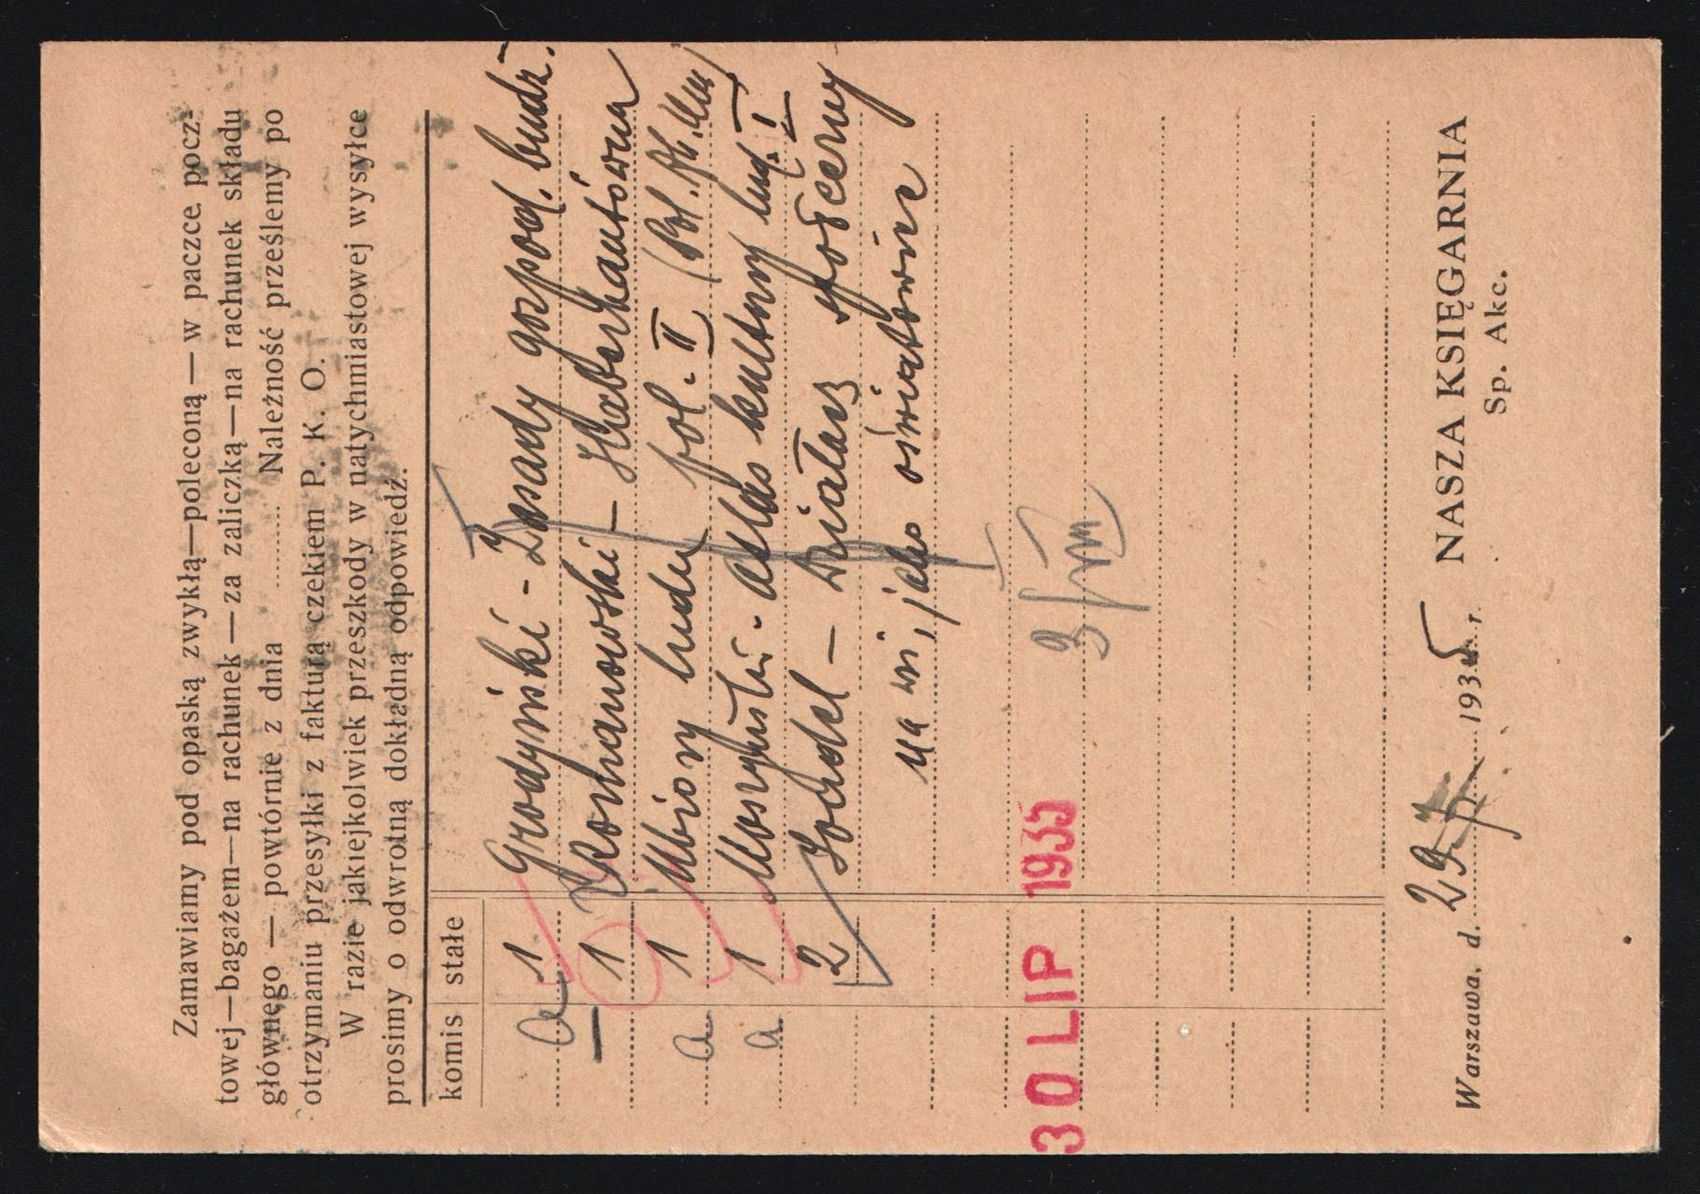 Zamawiamy pod opaską zwykłą—poleconą — w paczce pocz-
towej—bagażem—na rachunek — za zaliczką—na rachunek składu
głównego — powtórnie z dnia ........ Należność prześlemy po
otrzymaniu przesyłki z fakturą czekiem P. K. O.
W razie jakiejkolwiek przeszkody w natychmiastowej wysyłce
prosimy o odwrotną dokładną odpowiedź.
komis stałe
a 1 Grodyński - Zasady gospod. budż.
— 1 Kochanowski -
a 1 Ubiory ludu pol. II
a 1 Moszyński - atlas kultury lud. I
2 Solarz społeczny
na wsi, jako oświatowiec
30 LIP 1935
Warszawa, d. 29 1935 r.
NASZA KSIĘGARNIA
Sp. Akc.